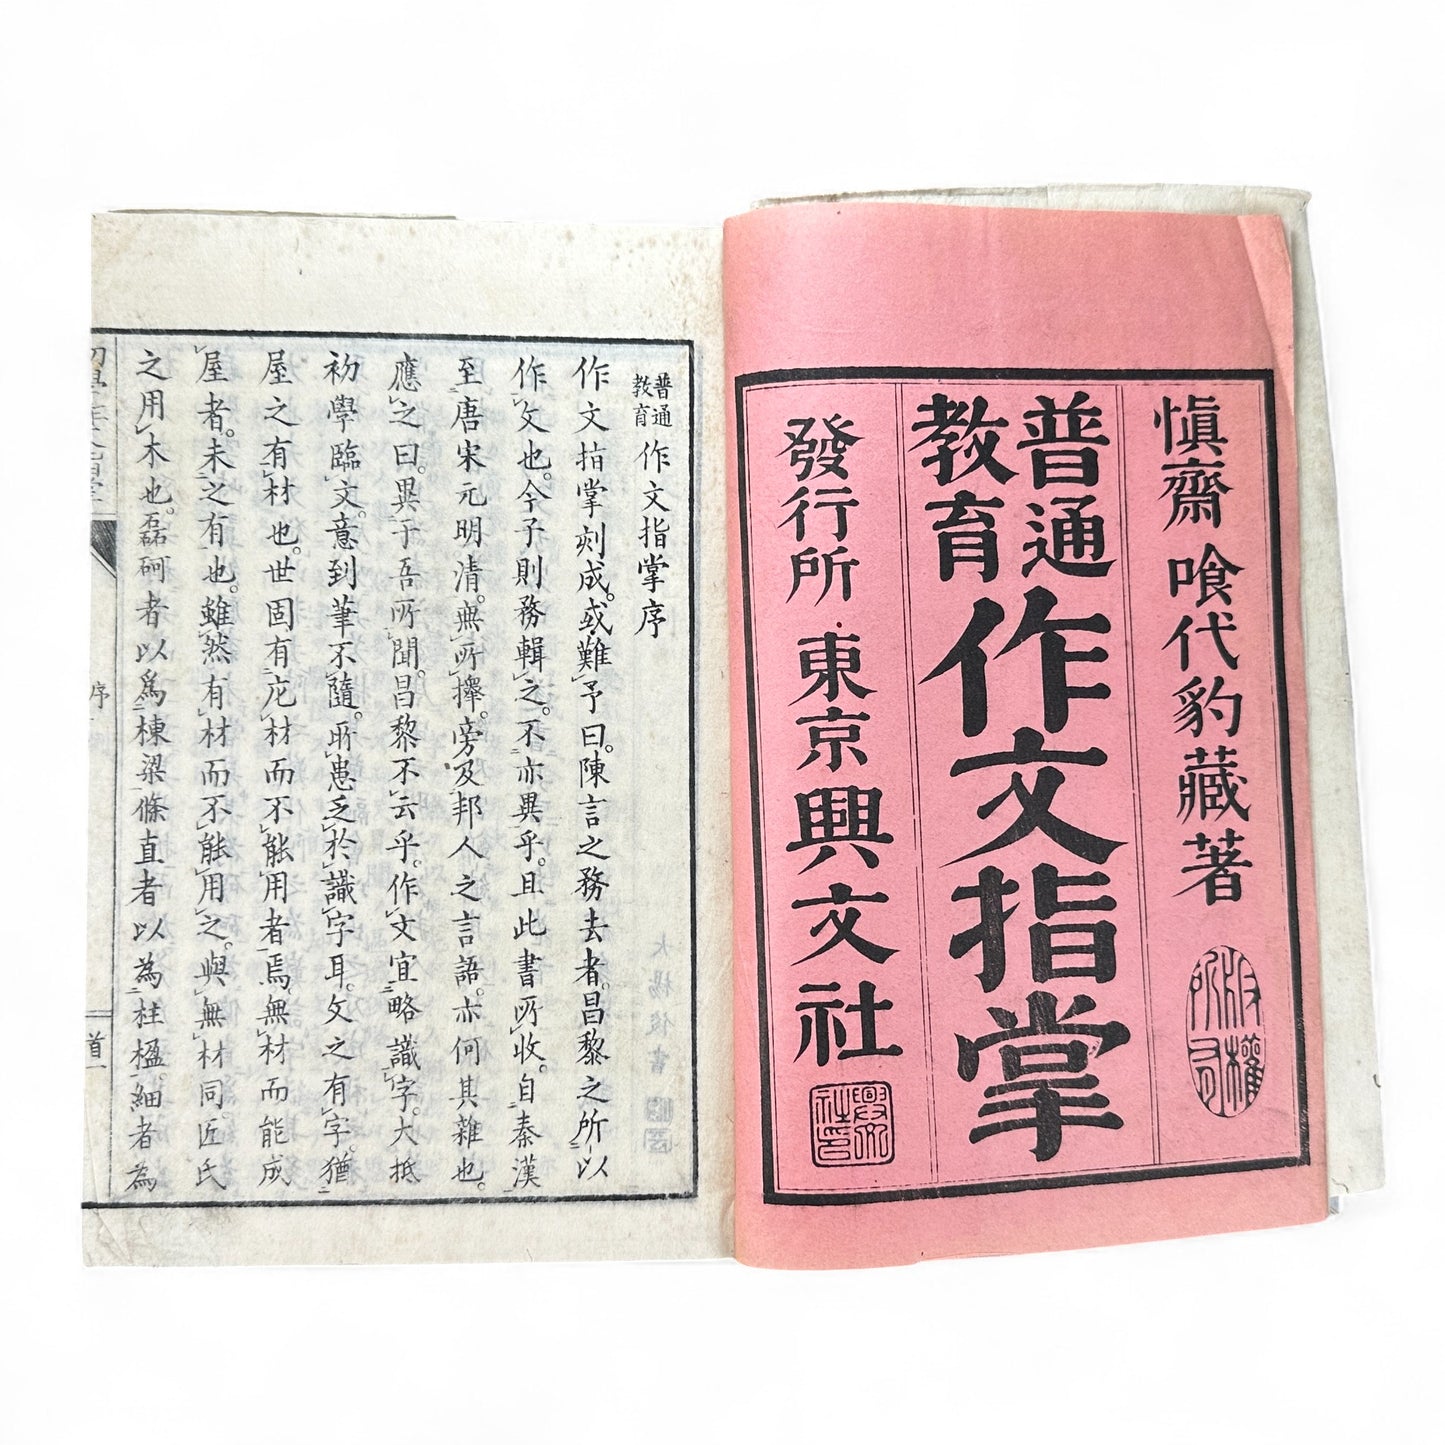 慎齋 喰代豹藏著
版權所有
普通教育 作文指掌
發行所 東京興文社
興文社印
普通教育 作文指掌序
作文指掌刻成。或難予曰。陳言之務去者。昌黎之所以
作文也。今子則務輯之。不亦異乎。且此書所收。自秦漢
至唐宋元明清。無所擇。旁及邦人之言語。亦何其雜也。
應之曰。異于吾所聞。昌黎不云乎。作文宜略識字。大抵
初學臨文。意到筆不隨。所患乏於識字耳。文之有字。猶
屋之有材也。世固有庀材而不能用者焉。無材而能成
屋者。未之有也。雖然有材而不能用之。與無材同。匠氏
之用木也。磊砢者以爲棟梁條直者以為柱楹。細者為
序